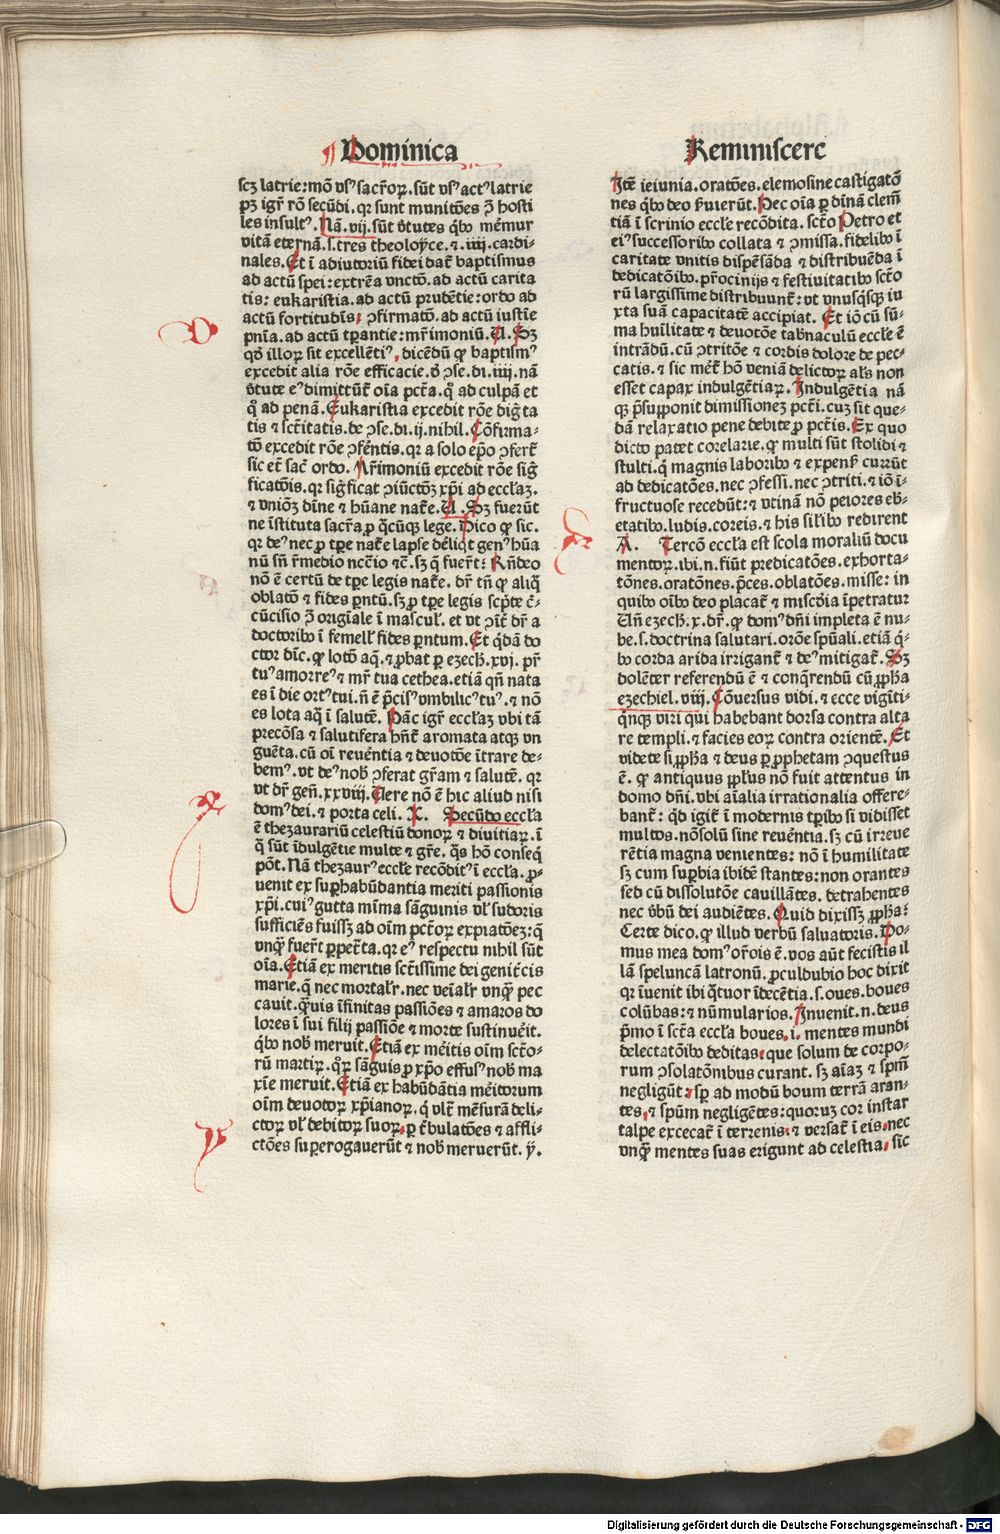 Dominica
scz latrie: mō vsꝰ sacr̄oꝝ. sūt vsꝰ actꝰ latrie
ꝑꝫ igr̄ rō secūdi. qꝛ sunt munitōes ↄ̄ hosti
les insultꝰ. Nā. vij. sūt v̓tutes q̄bꝰ mēmur
vitā eternā. s. tres theoloyce. ⁊. iiij. cardi-
nales. Et ī adiutoriū fidei dat̄ baptismus
ad actū spei: extrēa vnctō. ad actū carita
tis: eukaristia. ad actū prudētie: ordo ad
actū fortitudīs; ↄfirmatō. ad actū iustīe
pnīa. ad actū tꝑantie: mr̄imoniū. V. Sꝫ
qd̓ illoꝝ sit excellētiꝰ, dicēdū ꝙ baptismꝰ
excedit alia rōe efficacie. vt̄ ↄse. di. iiij. nā
v̓tute eꝰ dimittūt̄ oīa pctā. q̄ ad culpā et
q̄ ad penā. Eukaristia excedit rōe diḡta
tis ⁊ sct̄itatis. de ↄse. di. ij. nihil. Cōfirma-
tō excedit rōe ↄfēntis. qꝛ a solo ep̄o ↄfert̄
sic et̄ sac̄ ordo. Mr̄imoniū excedit rōe siḡ
ficatōis. qꝛ siḡficat ↄiūctōꝫ xp̄i ad eccl̄aꝫ.
⁊ vniōꝫ dīne ⁊ hūane nat̄e. V. Sꝫ fuerūt
ne īstituta sacr̄a ꝓ q̄cūqꝫ lege. Dico ꝙ sic.
qꝛ deꝰ nec ꝓ tꝑe nat̄e lapse deliq̄t genꝰ hūa
nū sn̄ r̄medio nccīo ⁊c̄. sꝫ q̄ fuer̄t: Rn̄deo
nō ē certū de tꝑe legis nat̄e. dr̄ tn̄ ꝙ aliq̄
oblatō ⁊ fides ꝑntū. sꝫ ꝓ tꝑe legis scp̄te c̄-
cūcisio ↄ̄ origīale ī mascul̄. et vt ↄīt̄ dr̄ a
doctoribꝰ ī femell̄ fides ꝑntum. Et q̄dā do
ctor dīc. ꝙ lotō aq̄. ⁊ ꝓbat ꝑ ezech̄. xvj. pr̄
tuꝰ amorreꝰ ⁊ mr̄ tua cethea. etiā qn̄ nata
es ī die ortꝰ tui. n̄ ē p̄cisꝰ vmbilicꝰ tuꝰ. ⁊ nō
es lota aq̄ ī salutē. Hāc igr̄ eccl̄aꝫ vbi tā
precōsa ⁊ salutifera hn̄t̄ aromata atqꝫ vn
guēta. cū oī reuēntia ⁊ deuotōe ītrare de-
bemꝰ. vt deꝰ nob̄ ↄferat gr̄am ⁊ salutē. qꝛ
vt dr̄ gen̄. xxviij. Uere nō ē hic aliud nisi
domꝰ dei. ⁊ porta celi. X. Secūdo eccl̄a
ē thezaurariū celestiū donoꝝ ⁊ diuitiaꝝ. ī
q̄ sūt īdulgētie multe ⁊ gr̄e. q̄s hō conseq̄
pōt. Nā thezaurꝰ eccl̄e recōditꝰ ī eccl̄a. ꝓ-
uenit ex suꝑhabūdantia meriti passionis
xp̄i. cuiꝰ gutta mīma sāguinis vl̄ sudoris
sufficiēs fuissꝫ ad oīm pct̄oꝝ expiatōeꝫ: q̄
vnq̄ fuer̄t ꝑpet̄ta. qꝛ eꝰ respectu nihil sūt
oīa. Etiā ex meritis sct̄issime dei genit̄cis
marie. q̄ nec mortal̄r. nec veīal̄r vnq̄ pec
cauit. q̄uis īfinitas passiōes ⁊ amaros do
lores ī sui filij passiōe ⁊ morte sustinuēit.
q̄bꝰ nob̄ meruit. Etiā ex mēitis oīm sct̄o-
rū martiꝝ. q̄ꝝ sāguis ꝓ xp̄o effusꝰ nob̄ ma
xīe meruit. Etiā ex habūdātia mēitorum
oīm deuotoꝝ xp̄ianoꝝ. q̄ vlt̄ mēsurā deli-
ctoꝝ vl̄ debitoꝝ suoꝝ, ꝑ t̄bulatōes ⁊ affli-
ctōes suꝑerogauerūt ⁊ nob̄ meruerūt. Y.
Reminiscere
Itē ieiunia. oratōes. elemosine castigatō
nes q̄bꝰ deo ẜuierūt. Hec oīa ꝑ dīnā clem̄
tiā ī scrinio eccl̄e recōdita. sct̄o Petro et
eiꝰ successoribꝰ collata ⁊ ↄmissa. fidelibꝰ ī
caritate vnitis dispēsāda ⁊ distribuēda ī
dedicatōibꝰ. pr̄ocinijs ⁊ festiuitatibꝰ sct̄o
rū largissime distribuunt̄: vt vnusq̄sqꝫ iu
xta suā capacitatē accipiat. Et iō cū sū-
ma huīlitate ⁊ deuotōe tab̄naculū eccl̄e ē
intrādū. cū ↄtritōe ⁊ cordis dolore de pec-
catis. ⁊ sic mēt̄ hō veniā delictoꝝ al̄s non
esset capax indulgētiaꝝ. Indulgētia nā
qꝫ p̄suꝓponit dimissionez pct̄i. cuꝫ sit que-
dā relaxatio pene debite ꝓ pct̄is. Ex quo
dicto patet corelarie. ꝙ multi sūt stolidi ⁊
stulti. q̄ magnis laboribꝰ ⁊ expens̄ currūt
ad dedicatōes. nec ↄfessi. nec ↄtriti. ⁊ iō ī-
fructuose recedūt: ⁊ vtinā nō peiores eb-
etatibꝰ. ludis. coreis. ⁊ his sil̄ibꝰ redirent
A. Tercō eccl̄a est scola moraliū docu
mentoꝝ. ibi. n. fiūt predicatōes. exhorta-
tōnes. oratōnes. p̄ces. oblatōes. misse: in
quibꝰ oībꝰ deo placat̄ ⁊ miscd̓ia īpetratur
Un̄ ezech̄. x. dr̄. ꝙ domꝰ dn̄i impleta ē nu-
be. s. doctrina salutari. orōe spūali. etiā q̄-
bꝰ corda arida irrigant̄ ⁊ deꝰ mitigat̄. Sꝫ
dolēter referendū ē ⁊ conq̄rendū cū ꝓpħa
ezechiel. viij. Cōuersus vidi. ⁊ ecce vigīti-
q̄nqꝫ viri qui habebant dorsa contra alta
re templi. ⁊ facies eoꝝ contra orientē. Et
videte si ꝓpħa ⁊ deus ꝑ ꝓphetam ↄquestus
ē. ꝙ antiquus ppl̄us nō fuit attentus in
domo dn̄i. vbi aīalia irrationalia offere-
bant̄: qd̄ igit̄ ī modernis tꝑibꝰ si vidisset
multos. nōsolū sine reuēntia. sꝫ cū irreue
rētia magna venientes: nō ī humilitate
sꝫ cum suꝑbia ibidē stantes: non orantes
sed cū dissolutōe cauillātes. detrahentes
nec v̓bū dei audiētes. Quid dixissꝫ ꝓpħa?
Certe dico. ꝙ illud verbū saluatoris. Do-
mus mea domꝰ or̄ois ē. vos aūt fecistis il
lā speluncā latronū. ꝓculdubio hoc dixit
qꝛ īuenit ibi q̄tuor īdecētia. s. oues. boues
colūbas: ⁊ nūmularios. Inuenit. n. deus
p̄mo ī sct̄a eccl̄a boues. i. mentes mundi
delectatōibꝰ deditas: que solum de corpo-
rum ↄsolatōnibus curant. sꝫ aīaꝫ ⁊ spm̄
negligūt: sꝑ ad modū boum terrā aran-
tes, ⁊ spūm negligētes: quoruꝫ cor instar
talpe excecat̄ ī terrenis: ⁊ versat̄ ī eis, nec
vnq̄ mentes suas erigunt ad celestia, sic
Digitalisierung gefördert durch die Deutsche Forschungsgemeinschaft - DFG